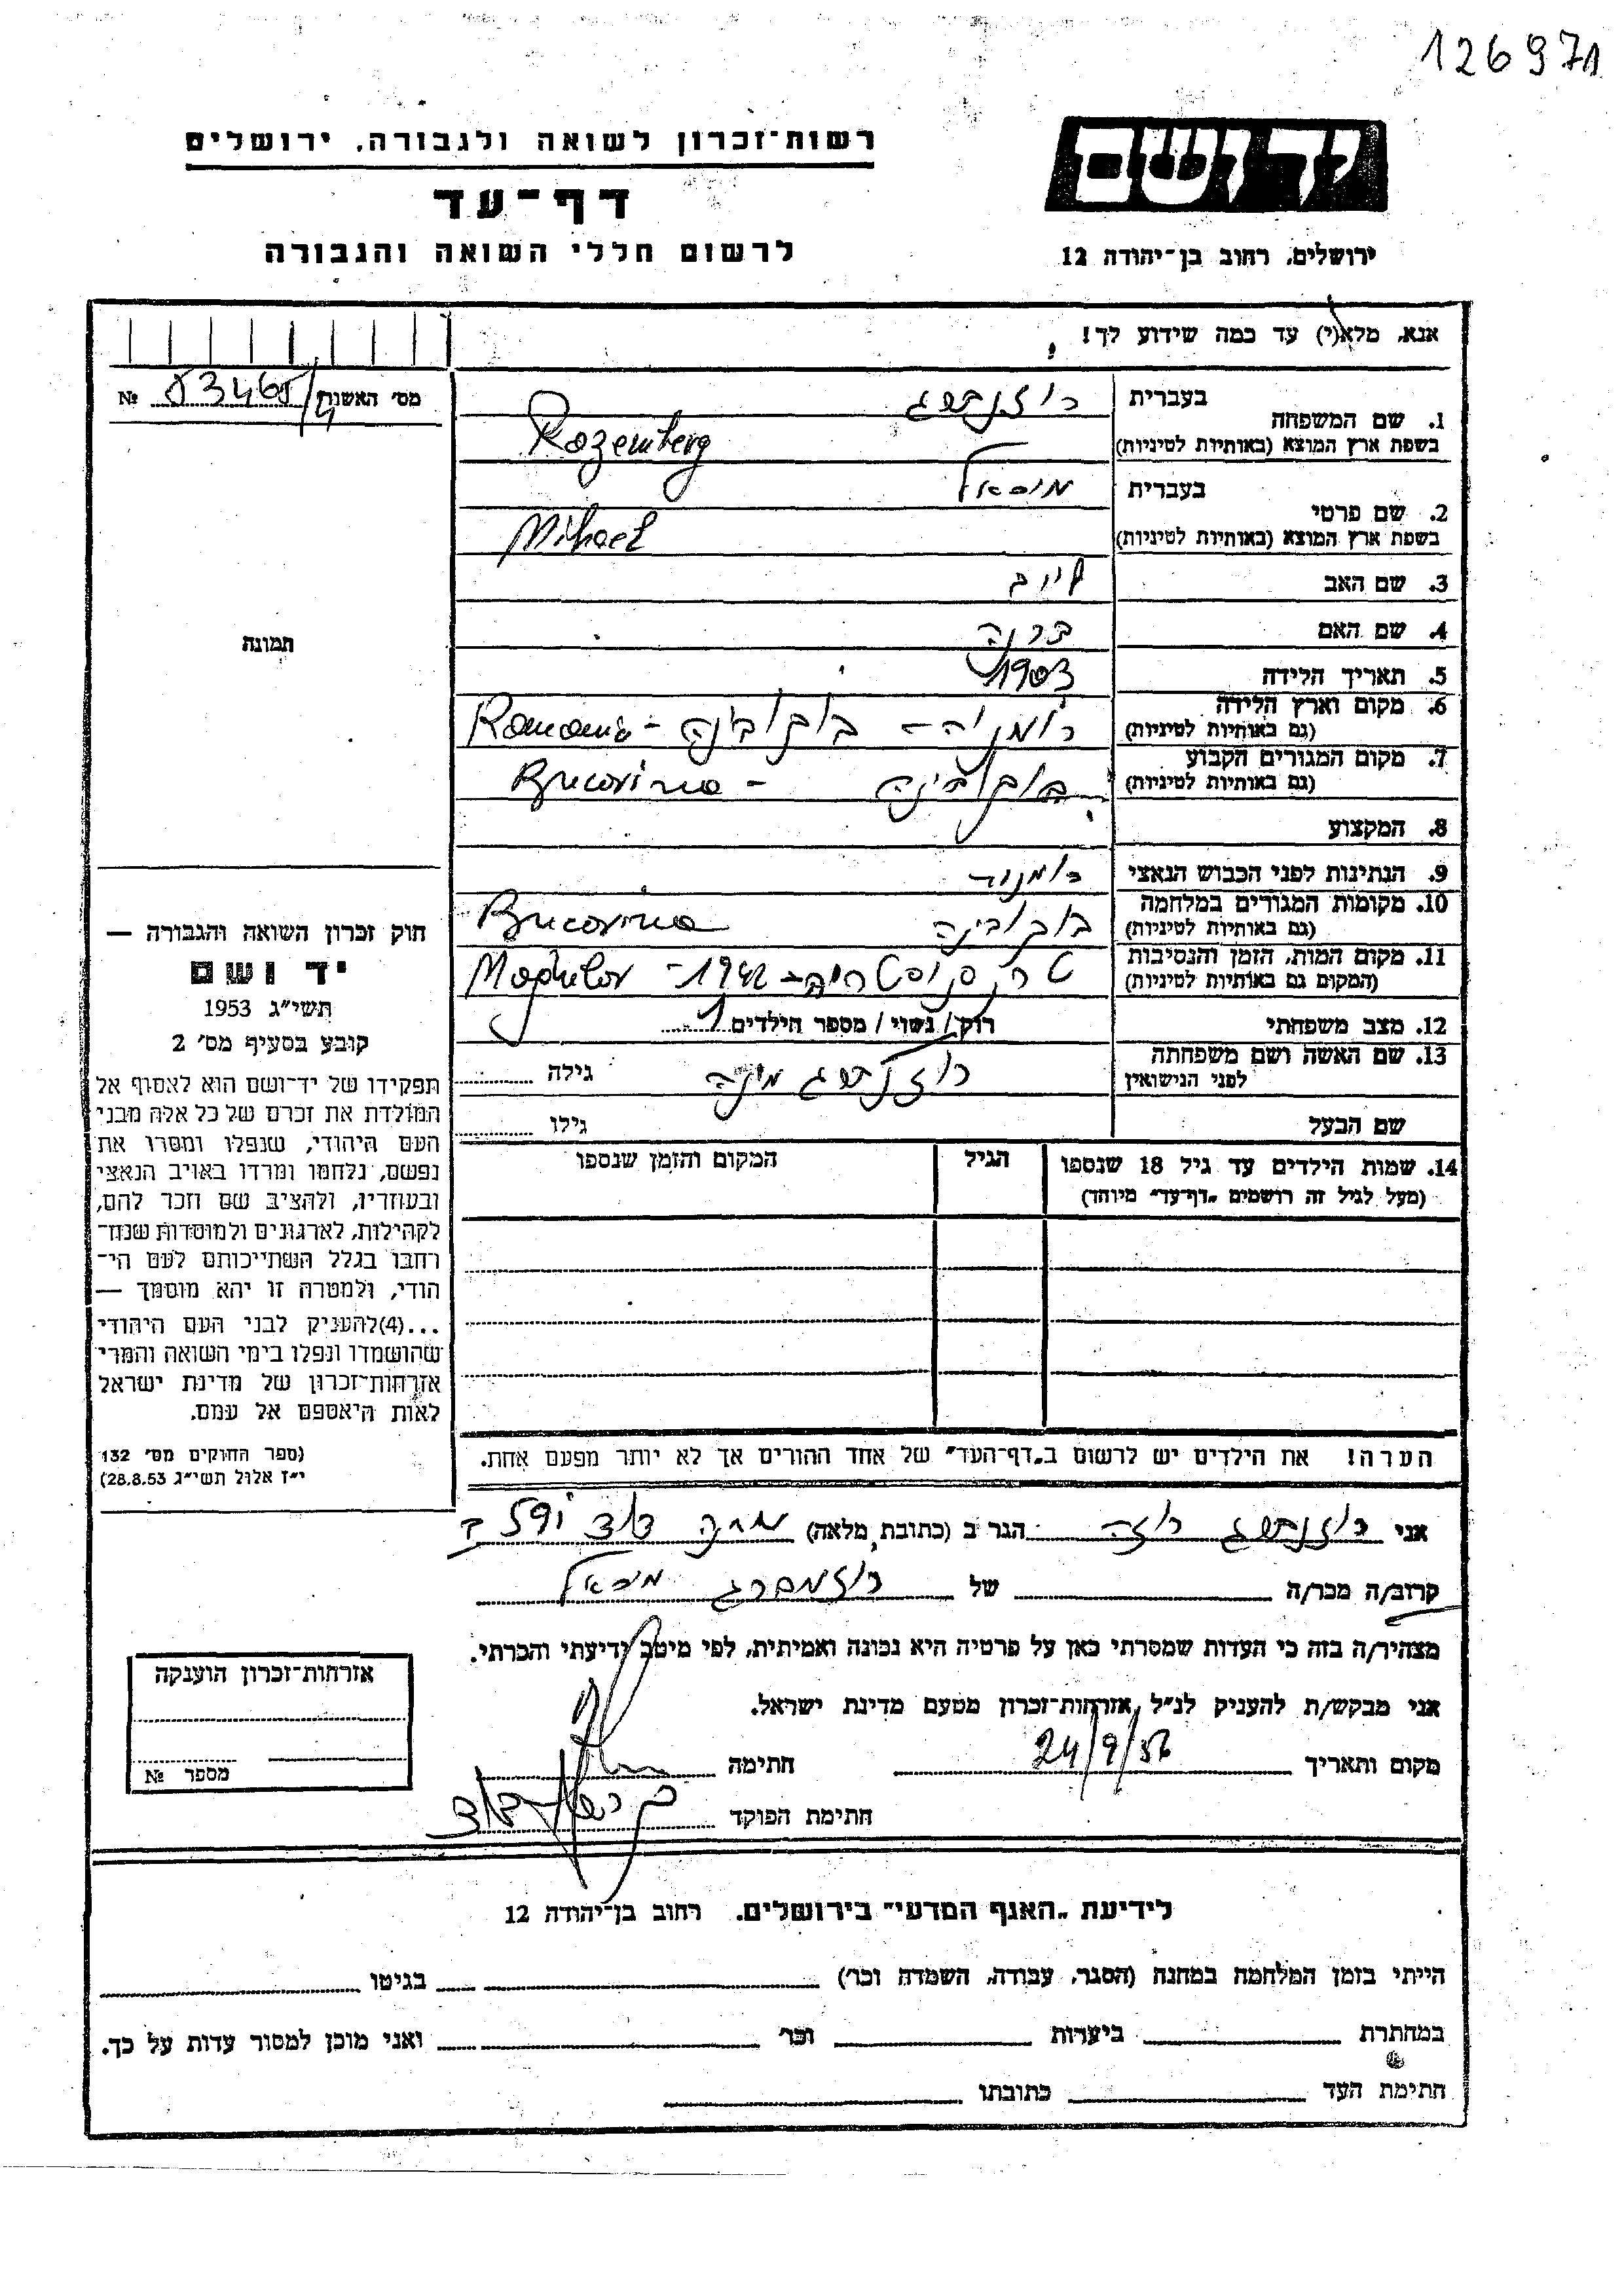 126971
רשות־זכרון לשואה ולגבורה, ירושלים
יד ושם
דף־עד
לרשום חללי השואה והגבורה
ירושלים, רחוב בן־יהודה 12
אנא, מלא(י) עד כמה שידוע לך!
מס׳ האשנה № 83465/4
1. שם המשפחה
בעברית רוזנברג
בשפת ארץ המוצא (באותיות לטיניות) Rozemberg
2. שם פרטי
בעברית מיכאל
בשפת ארץ המוצא (באותיות לטיניות) Mihael
3. שם האב לייב
4. שם האם
5. תאריך הלידה 1903
6. מקום וארץ הלידה רומניה – בוקובינה – Romania
(גם באותיות לטיניות)
7. מקום המגורים הקבוע בוקובינה – Bucovina
(גם באותיות לטיניות)
8. המקצוע
9. הנתינות לפני הכבוש הנאצי רומנית
10. מקומות המגורים במלחמה בוקובינה Bucovina
(גם באותיות לטיניות)
11. מקום המות, הזמן והנסיבות טרנסניסטריה – 1942 – Moghilov
(המקום גם באותיות לטיניות)
12. מצב משפחתי רוק / נשוי / מספר הילדים 1
13. שם האשה ושם משפחתה רוזנברג גילה
לפני הנישואין
שם הבעל גילו
14. שמות הילדים עד גיל 18 שנספו הגיל המקום והזמן שנספו
(מעל לגיל זה רושמים „דף־עד״ מיוחד)
הערה! את הילדים יש לרשום ב„דף־העד״ של אחד ההורים אך לא יותר מפעם אחת.
תמונה
חוק זכרון השואה והגבורה —
יד ושם
תשי״ג 1953
קובע בסעיף מס׳ 2
תפקידו של יד־ושם הוא לאסוף אל
המולדת את זכרם של כל אלה מבני
העם היהודי, שנפלו ומסרו את
נפשם, נלחמו ומרדו באויב הנאצי
ובעוזריו, ולהציב שם וזכר להם,
לקהילות, לארגונים ולמוסדות שנח־
רבו בגלל השתייכותם לעם הי־
הודי, ולמטרה זו יהא מוסמך —
...(4)להעניק לבני העם היהודי
שהושמדו ונפלו בימי השואה והמרי
אזרחות־זכרון של מדינת ישראל
לאות היאספם אל עמם.
(ספר החוקים מס׳ 132
י״ז אלול תשי״ג 28.8.53)
אני רוזנברג רוזה הגר ב (כתובת מלאה)
קרוב/ה מכר/ה של רוזמברג מיכאל
מצהיר/ה בזה כי העדות שמסרתי כאן על פרטיה היא נכונה ואמיתית, לפי מיטב ידיעתי והכרתי.
אני מבקש/ת להעניק לנ״ל אזרחות־זכרון מטעם מדינת ישראל.
מקום ותאריך 24/9/56 חתימה
חתימת הפוקד
אזרחות־זכרון הוענקה
מספר №
לידיעת „האגף המדעי״ בירושלים, רחוב בן־יהודה 12
הייתי בזמן המלחמה במחנה (הסגר, עבודה, השמדה וכו׳) בגיטו
במחתרת ביערות וכו׳ ואני מוכן למסור עדות על כך.
חתימת העד כתובתו